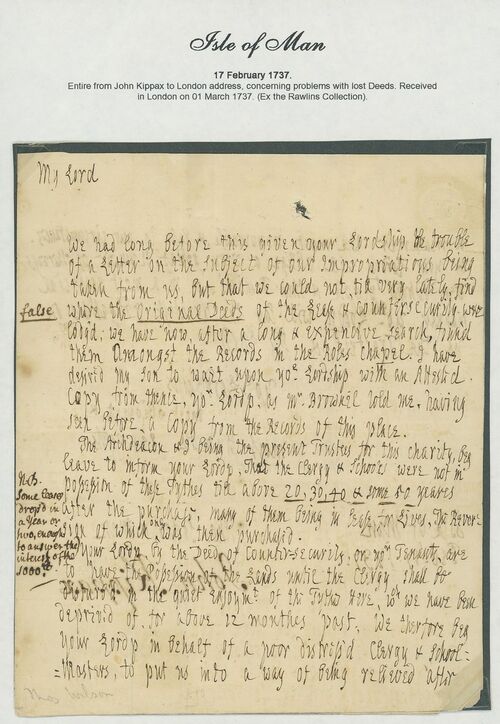 Isle of Man
17 February 1737.
Entire from John Kippax to London address, concerning problems with lost Deeds. Received
in London on 01 March 1737. (Ex the Rawlins Collection).
My Lord
We had long before this given your Lordship the trouble
of a Letter on the Subject of our Impropriations being
taken from us, but that we could not, till very lately, find
false
where the Original Deeds of the Lease & Countersecurity were
lodg'd; we have now, after a long & expensive search, found
them Amongst the Records in the Roles Chapel. I have
desired my Son to wait upon yor Lordship with an Attested
Copy from thence, yor Lordp, as Mr. Brownel told me, having
seen before, a Copy from the Records of this place.
The Archdeacon & I being the present Trustes for this charity, beg
leave to inform your Lordp, That the Clergy & Schools were not in
possesion of these Tythes till above 20, 30, 40 & some 50 yeares
after the purchase, many of them being in Lease for Lives, The Rever
sion of which was then purchased.
N.B.
Some leases
drop'd in
a year or
two, enough
to answer the
interest of the
1000£
Your Lordp by the Deed of Counter-security, or yor Tenants, are
to have the Possesion of the Lands until the Clergy shall be
in the quiet Enjoymt of the Tythes Here, wch we have been
deprived of, for above 12 months past, We therefore beg
your Lordp in behalf of a poor distres'd Clergy & School-
=Masters, to put us into a way of being relieved after
Wilson